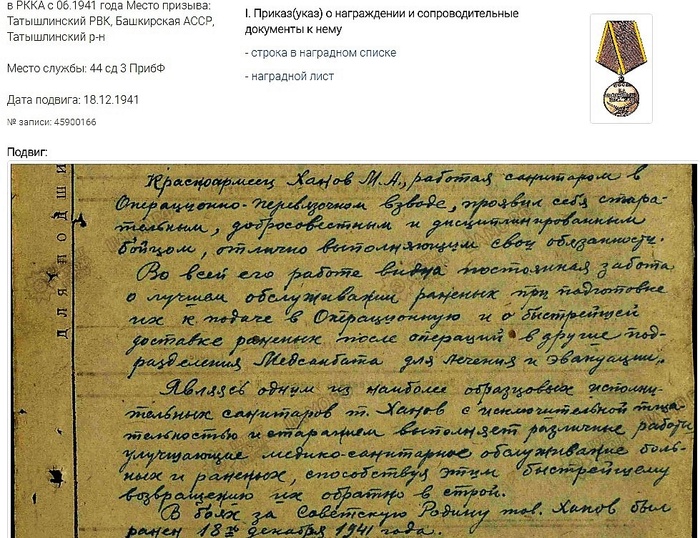 в РККА с 06.1941 года Место призыва:
Татышлинский РВК, Башкирская АССР,
Татышлинский р-н
Место службы: 44 сд 3 ПрибФ
Дата подвига: 18.12.1941
№ записи: 45900166
I. Приказ(указ) о награждении и сопроводительные
документы к нему
- строка в наградном списке
- наградной лист
Подвиг:
ДЛЯ ПОДШИ
Красноармеец Ханов М.А., работая санитаром в
Операционно-перевязочном взводе, проявил себя стара-
тельным, добросовестным и дисциплинированным
бойцом, отлично выполняющим свои обязанности.
Во всей его работе видна постоянная забота
о лучшем обслуживании раненых при подготовке
их к подаче в Операционную и о быстрейшей
доставке раненых после операций в другие под-
разделения Медсанбата для лечения и эвакуации.
Являясь одним из наиболее образцовых исполни-
тельных санитаров т. Ханов с исключительной тща-
тельностью и старанием выполняет различные работы
улучшающие медико-санитарное обслуживание боль-
ных и раненых, способствуя этим быстрейшему
возвращению их обратно в строй.
В боях за Советскую Родину тов. Ханов был
ранен 18го декабря 1941 года.